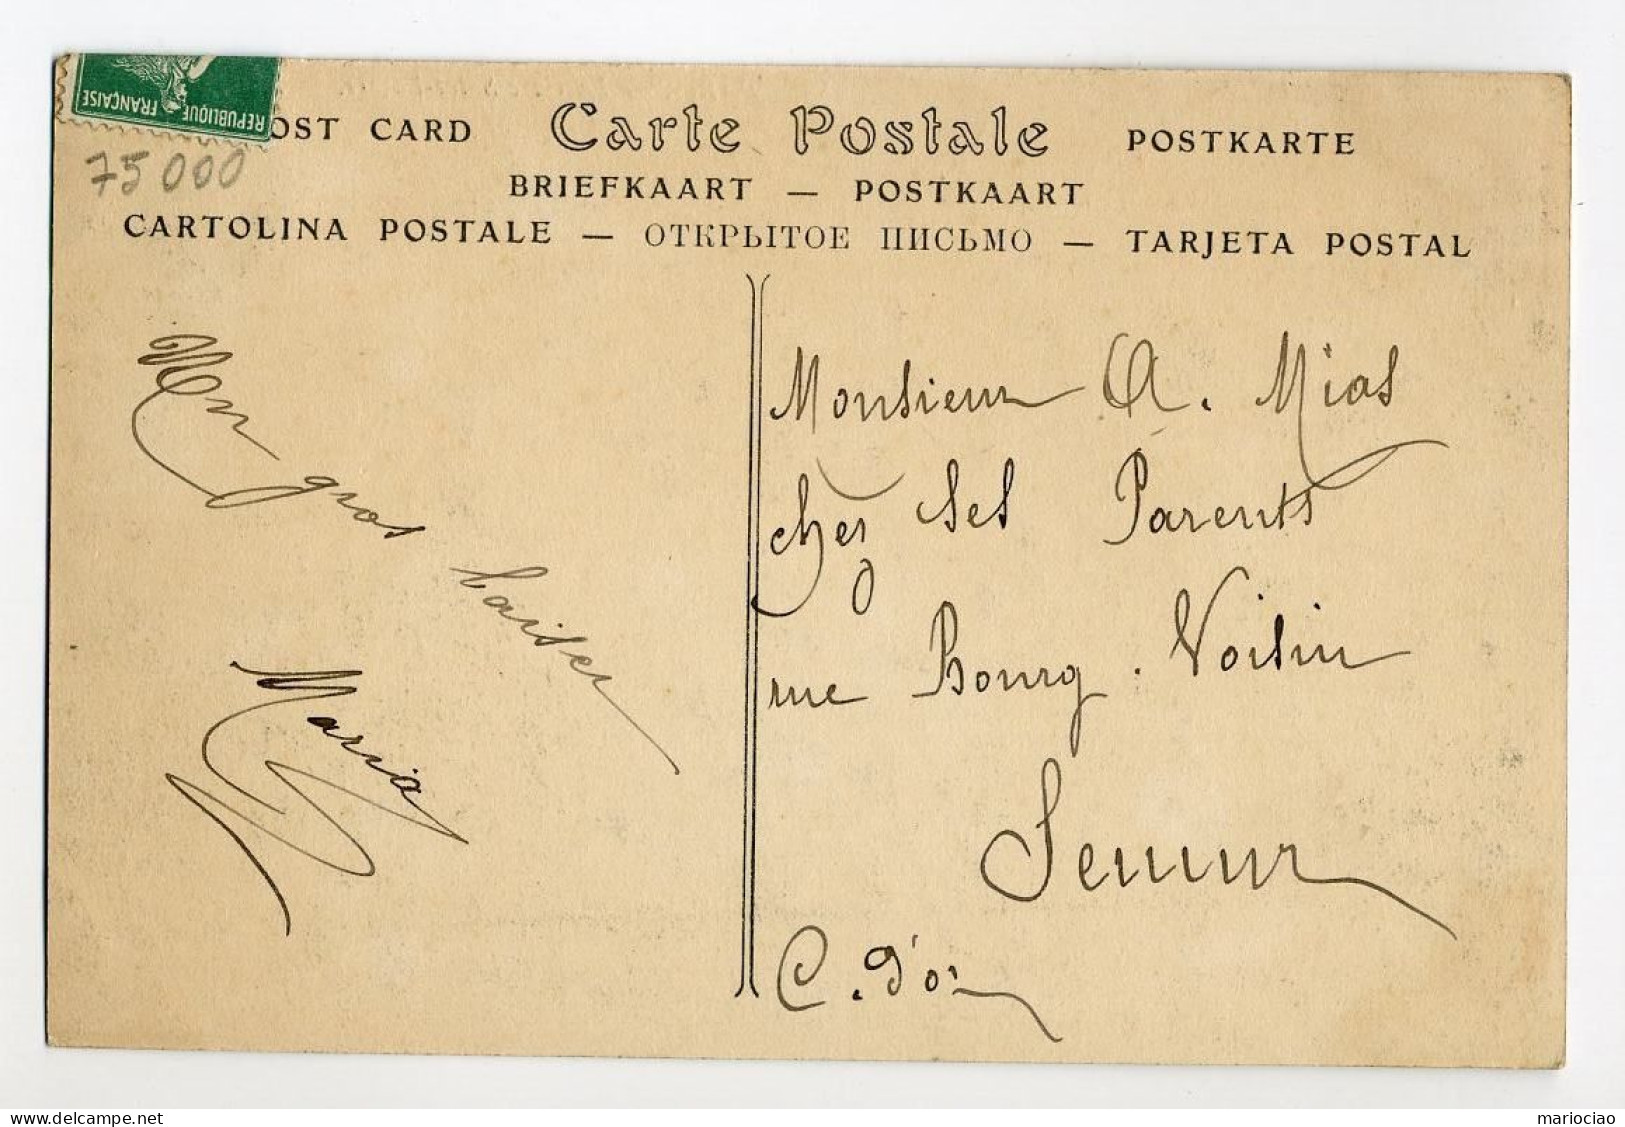 REPUBLIQUE FRANÇAISE
OST CARD Carte Postale POSTKARTE
75000
BRIEFKAART — POSTKAART
CARTOLINA POSTALE — ОТКРЫТОЕ ПИСЬМО — TARJETA POSTAL
Un gros baiser
Maria
Monsieur A. Mias
chez ses Parents
rue Bourg. Voisin
Semur
C. d'or
mariociao